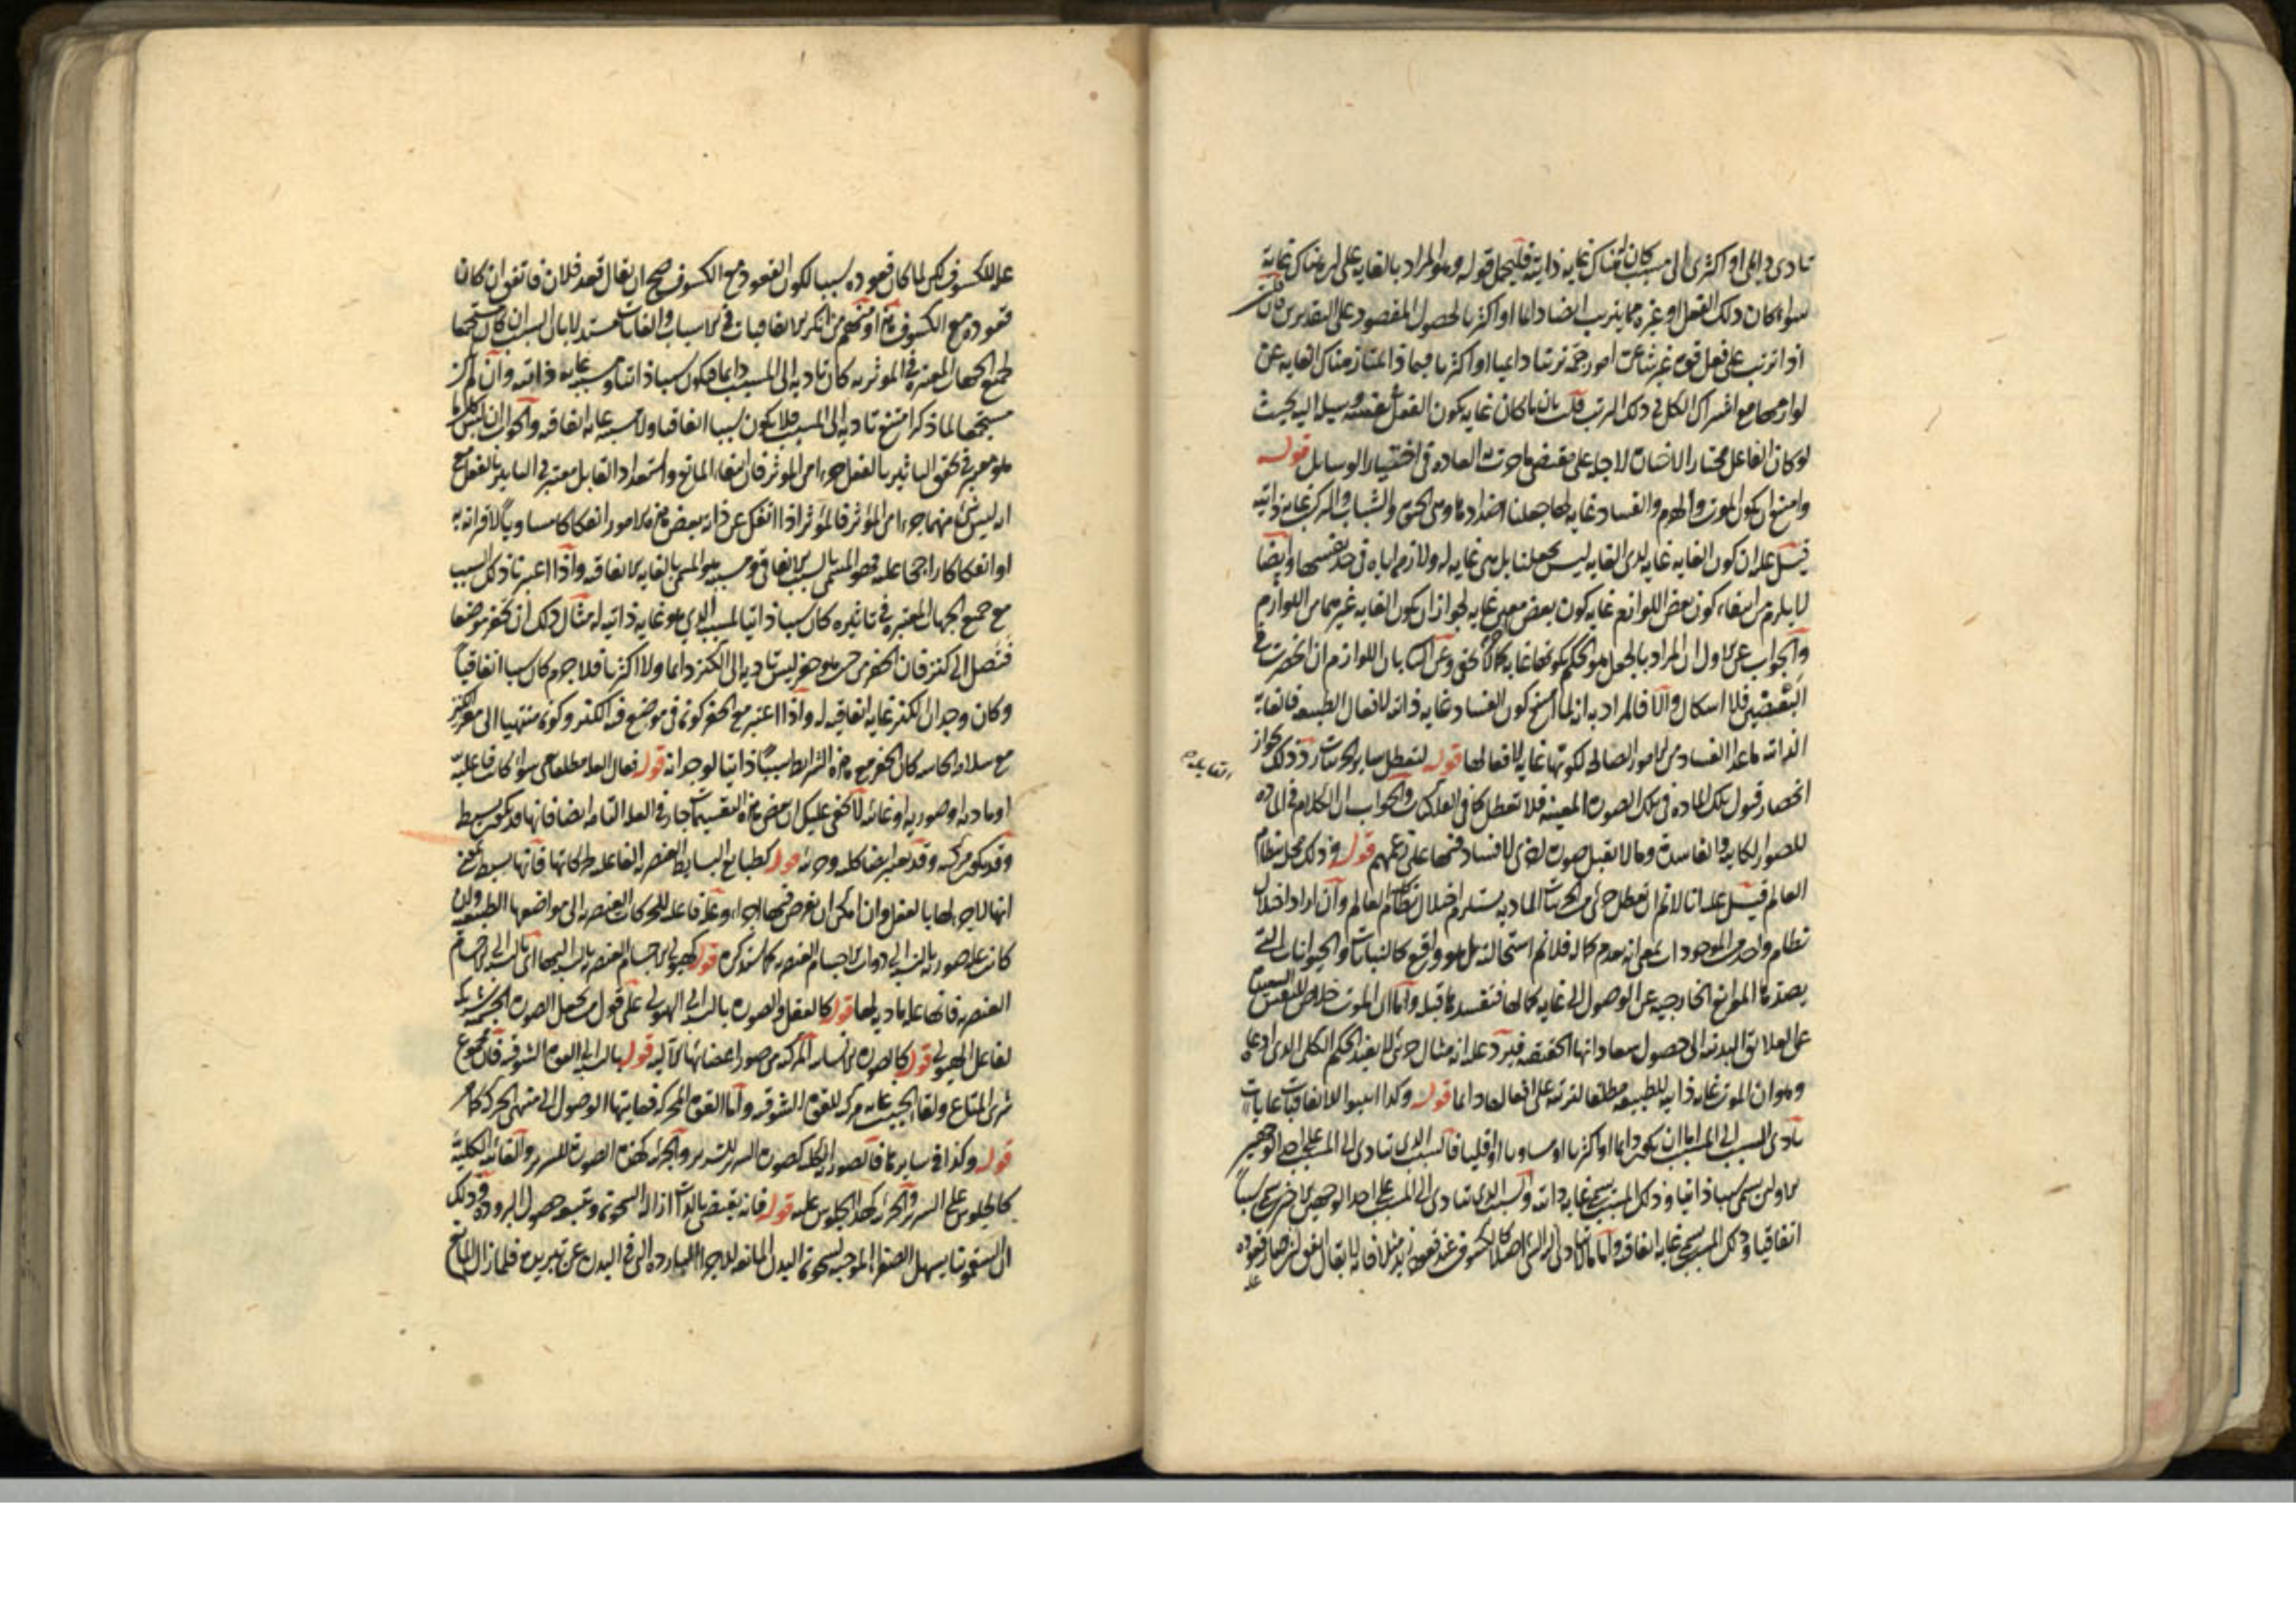 تادى دايمى او اكثرى الى مسبب كان هناك غاية ذاتية فليحمل قوله وهو المراد بالغاية على ان هناك غاية
سواء كان ذلك الفعل او غيره مما يترتب ايضا دايما او اكثريا لحصول المقصود على التقديرين فان قلت
اذا ترتب على فعل قوة غير شاعرة امور جمة ترتبا دايميا او اكثريا فبماذا يمتاز هناك الغاية عن
لوازمها مع اشتراك الكل فى ذلك الترتب قلت بان ما كان غاية يكون الفعل نفسه وسيلة اليه بحيث
لو كان الفاعل مختارا لاختاره لاجله على مقتضى ما جرت به العادة فى اختيار الوسايل قوله
وامتنع ان يكون الموت والهرم والفساد غاية لها جعلنا اضدادها وهى الحيوة والشباب والتركب غاية ذاتية
قيل عليه ان كون الغاية غاية لذى الغاية ليس بجعلنا بل هى غاية له ولازم اياه فى حد نفسها وايضا
لا يلزم من انتفاء كون بعض اللوازم غاية كون بعض معين غاية لجواز ان يكون الغاية غيرهما من اللوازم
والجواب عن الاول ان المراد بالجعل هو الحكم بكونها غاية كما لا يخفى وعن الثانى بان اللوازم ان انحصرت فى
البعضين فلا اشكال والا فالمراد به انه لما امتنع كون الفساد غاية ذاتية لافعال الطبيعة فالغاية
الذاتية ما عدا الفساد من الامور الصالحة لكونها غاية لافعالها قوله لتعطل ساير الحركات رد ذلك بجواز
انحصار قبول تلك المادة فى تلك الصورة المعينة فلا تعطل كما فى الفلكيات والجواب ان الكلام فى المادة القابلة
للصور الكاينة والفاسدة وما لا يقبل صورة اخرى لا فساد فيها على زعمهم قوله وذلك مخل بنظام
العالم قيل عليه انا لا نم ان تعطل جزئى من الحركات المادية يستلزم اختلال نظام كل العالم وان اراد اختلال
نظام واحد من الموجودات بمعنى انه يعدم كماله فلا نم استحالته بل هو واقع كالنباتات والحيوانات التى
يصدها الموانع الخارجية عن الوصول الى غاية كمالها فتفسد ما قبله واما ان الموت خلاص للنفس السعيدة
عن العلايق البدنية الى حصول سعاداتها الحقيقية فيرد عليه انه مثال جزئى لا يفيد الحكم الكلى الذى ادعاه
وهو ان الموت غاية ذاتية للطبيعة مطلقا لترتبه على افعالها دايما قوله وكذا اثبتوا للاتفاقيات غايات
تادى السبب الى المسبب اما ان يكون دايما او اكثريا او مساويا او اقليا فالسبب الذى يتادى الى المسبب على احد الوجهين
الاولين يسمى سببا ذاتيا وذلك المسبب يسمى غاية ذاتية والسبب الذى يتادى الى المسبب على احد الوجهين الاخيرين يسمى سببا
اتفاقيا وذلك المسبب يسمى غاية اتفاقية واما ما لا يتادى الى الشئ اصلا كالكسوف عند قعود زيد مثلا فانه لا يقال اتفق ان صار قعوده
علة
علة للكسوف لكن لما كان قعوده سببا لكون القعود مع الكسوف صح ان يقال قعد فلان فاتفق ان كان
قعوده مع الكسوف تام او منهم من انكر الاتفاقيات فى الاسباب والغايات مستدلا بان السبب ان كان مستجمعا
لجميع الجهات المعتبرة فى المؤثرية كان تاديه الى المسبب دايما فيكون سببا ذاتيا ومسببه غاية ذاتية وان لم يكن
مستجمعا لما ذكر امتنع تاديه الى المسبب فلا يكون سببا اتفاقيا ولا مسببه غاية اتفاقية والجواب ان ليس كل ما
هو معتبر فى تحقق التاثير بالفعل جزءا من المؤثر فان انتفاء المانع واستعداد القابل معتبر فى التاثير بالفعل مع
انه ليس شئ منهما جزءا من المؤثر فالمؤثر اذا انفك عن ذاته بعض هذه الامور انفكاكا مساويا لاقترانه به
او انفكاكا راجحا عليه فهو المسمى بالسبب الاتفاقى ومسببه هو المسمى بالغاية الاتفاقية واذا اعتبرنا ذلك السبب
مع جميع الجهات المعتبرة فى تاثيره كان سببا ذاتيا للمسبب الذى هو غاية ذاتية له مثال ذلك ان تحفر موضعا
فتصل الى كنز فان الحفر من حيث هو حفر ليس تاديه الى الكنز دايما ولا اكثريا فلا جرم كان سببا اتفاقيا
وكان وجدان الكنز غاية اتفاقية له واذا اعتبر مع الحفر كونه فى موضع فيه الكنز وكونه منتهيا الى مقر الكنز
مع سلامة الحاسة كان الحفر مع هذه الشرايط سببا ذاتيا لوجدانه قوله فعال العلة مطلقا هى سواء كانت فاعلية
او مادية او صورية او غائية لا يخفى عليك ان بعض هذه التقسيمات جار فى العلة التامة ايضا فانها قد يكون بسيطة
وقد يكون مركبة وقد تعتبر ايضا كلية وجزئية قوله كطبايع البسايط العنصرية الفاعلة لحركاتها فانها بسيطة بمعنى
انها لا جزء لها بالفعل وان امكن ان يفرض فيها اجزاء وعلة فاعلة للحركات العنصرية الى مواضعها الطبيعية وان
كانت علة صورية بالنسبة الى ذوات الاجسام العنصرية كما ستذكره قوله كهيولى الاجسام العنصرية بالنسبة اليها اى بالنسبة الى الاجسام
العنصرية فانها علة مادية لها قوله كالعقل والصورة بالنسبة الى الهيولى على قول من يجعل الصورة الجسمية شريكة
لفاعل الهيولى قوله كالصورة الانسانية المركبة من صور اعضائها الآلية قوله بالنسبة الى القوة الشوقية فان مجموع
شرى المتاع ولقاء الحبيب غاية مركبة للقوة الشوقية واما القوة المحركة فغايتها الوصول الى منتهى الحركة كما مر
قوله وكذا فى سايرها فالصورة الكلية كصورة السرير للسرير والجزئية كهذه الصورة للسرير والغائية الكلية
كالجلوس على السرير والجزئية كهذا الجلوس عليه قوله فانه يقتضى بالذات ازالة السخونة ويتبعه حصول البرودة وذلك
ان السقمونيا يسهل الصفراء الموجبة لسخونة البدن المانعة للاجزاء الباردة التى فى البدن عن تبريده فلما زال المانع